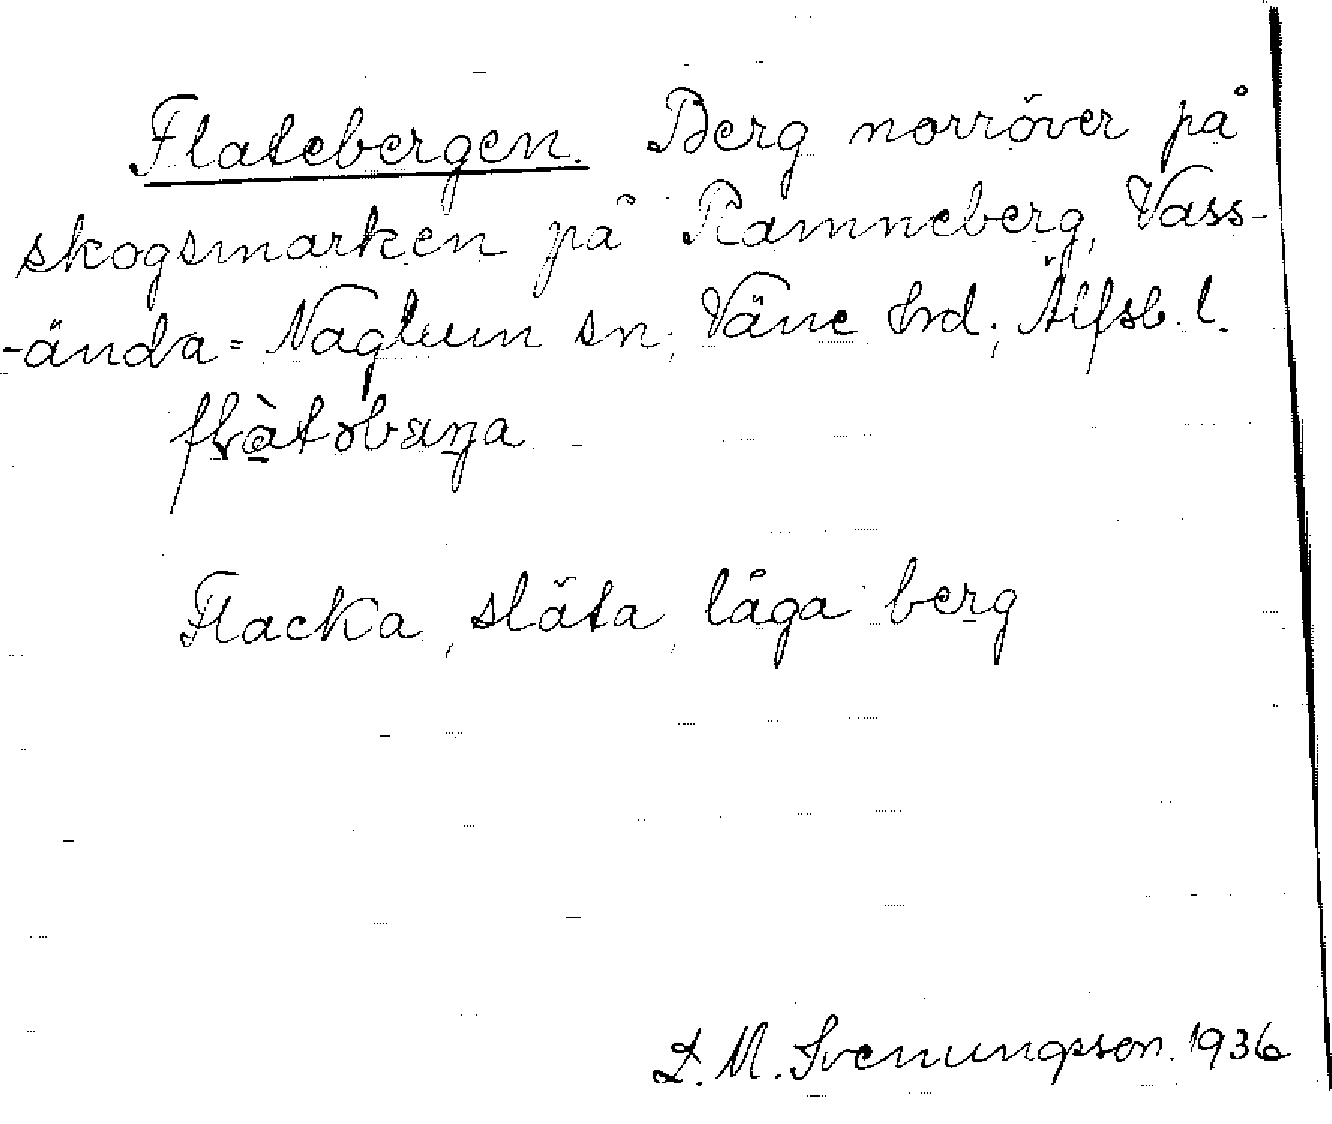 Flatebergen. Berg norröver på
skogsmarken på Ramneberg, Vass-
-ända-Naglum sn, Väne hrd, Älfsb. l.
Flacka, släta, låga berg
L. M. Svenungsson. 1936